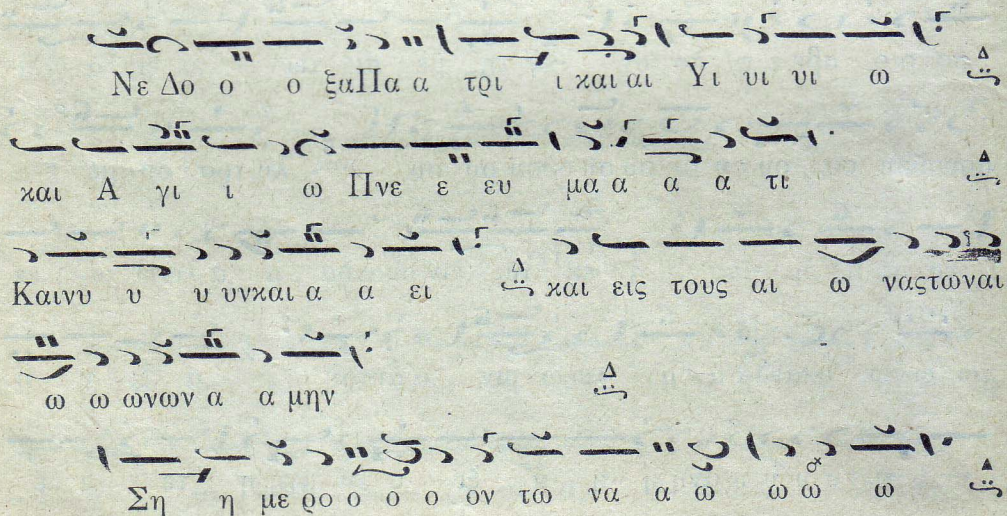 Νε Δο ο ο ξαΠα α τρι ι και αι Υι υι υι ω Δ
και Α γι ι ω Πνε ε ευ μα α α α τι Δ
Καινυ υ υ υνκαι α α ει Δ και εις τους αι ω ναςτωναι
ω ω ωνων α α μην Δ
Ση η με ρο ο ο ο ον τω να α ω ω ω ω Δ